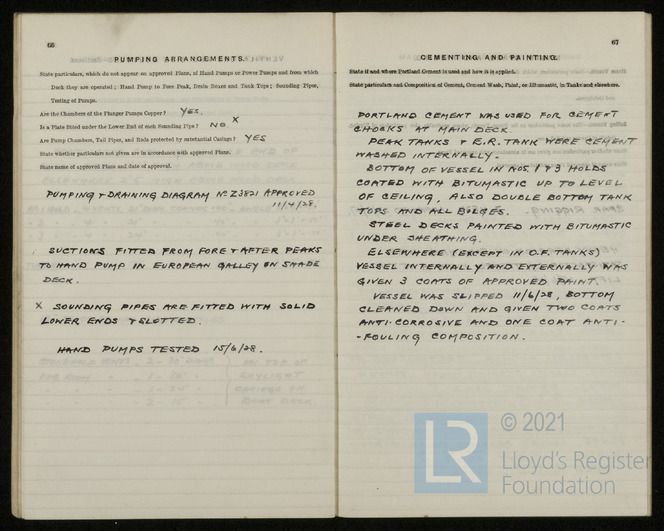 66
PUMPING ARRANGEMENTS.
State particulars, which do not appear on approved Plans, of Hand Pumps or Power Pumps and from which
Deck they are operated; Hand Pump to Fore Peak, Drain Boxes and Tank Tops; Sounding Pipes,
Testing of Pumps.
Are the Chambers of the Plunger Pumps Copper? YES.
Is a Plate fitted under the Lower End of each Sounding Pipe? NO X
Are Pump Chambers, Tail Pipes, and Rods protected by substantial Casings? YES
State whether particulars not given are in accordance with approved Plans.
State name of approved Plans and date of approval.
PUMPING & DRAINING DIAGRAM No Z3821 APPROVED
11/4/28.
SUCTIONS FITTED FROM FORE & AFTER PEAKS
TO HAND PUMP IN EUROPEAN GALLEY ON SHADE
DECK.
X SOUNDING PIPES ARE FITTED WITH SOLID
LOWER ENDS & SLOTTED.
HAND PUMPS TESTED 15/6/28.
67
CEMENTING AND PAINTING.
State if and where Portland Cement is used and how it is applied.
State particulars and Composition of Cement, Cement Wash, Paint, or Bitumastic, in Tanks and elsewhere.
PORTLAND CEMENT WAS USED FOR CEMENT
CHOCKS AT MAIN DECK
PEAK TANKS & E.R. TANK WERE CEMENT
WASHED INTERNALLY.
BOTTOM OF VESSEL IN NOS. 1 & 3 HOLDS
COATED WITH BITUMASTIC UP TO LEVEL
OF CEILING, ALSO DOUBLE BOTTOM TANK
TOPS AND ALL BILGES.
STEEL DECKS PAINTED WITH BITUMASTIC
UNDER SHEATHING.
ELSEWHERE (EXCEPT IN O.F. TANKS)
VESSEL INTERNALLY AND EXTERNALLY WAS
GIVEN 3 COATS OF APPROVED PAINT.
VESSEL WAS SLIPPED 11/6/28, BOTTOM
CLEANED DOWN AND GIVEN TWO COATS
ANTI-CORROSIVE AND ONE COAT ANTI-
-FOULING COMPOSITION.
LR
© 2021
Lloyd's Register
Foundation